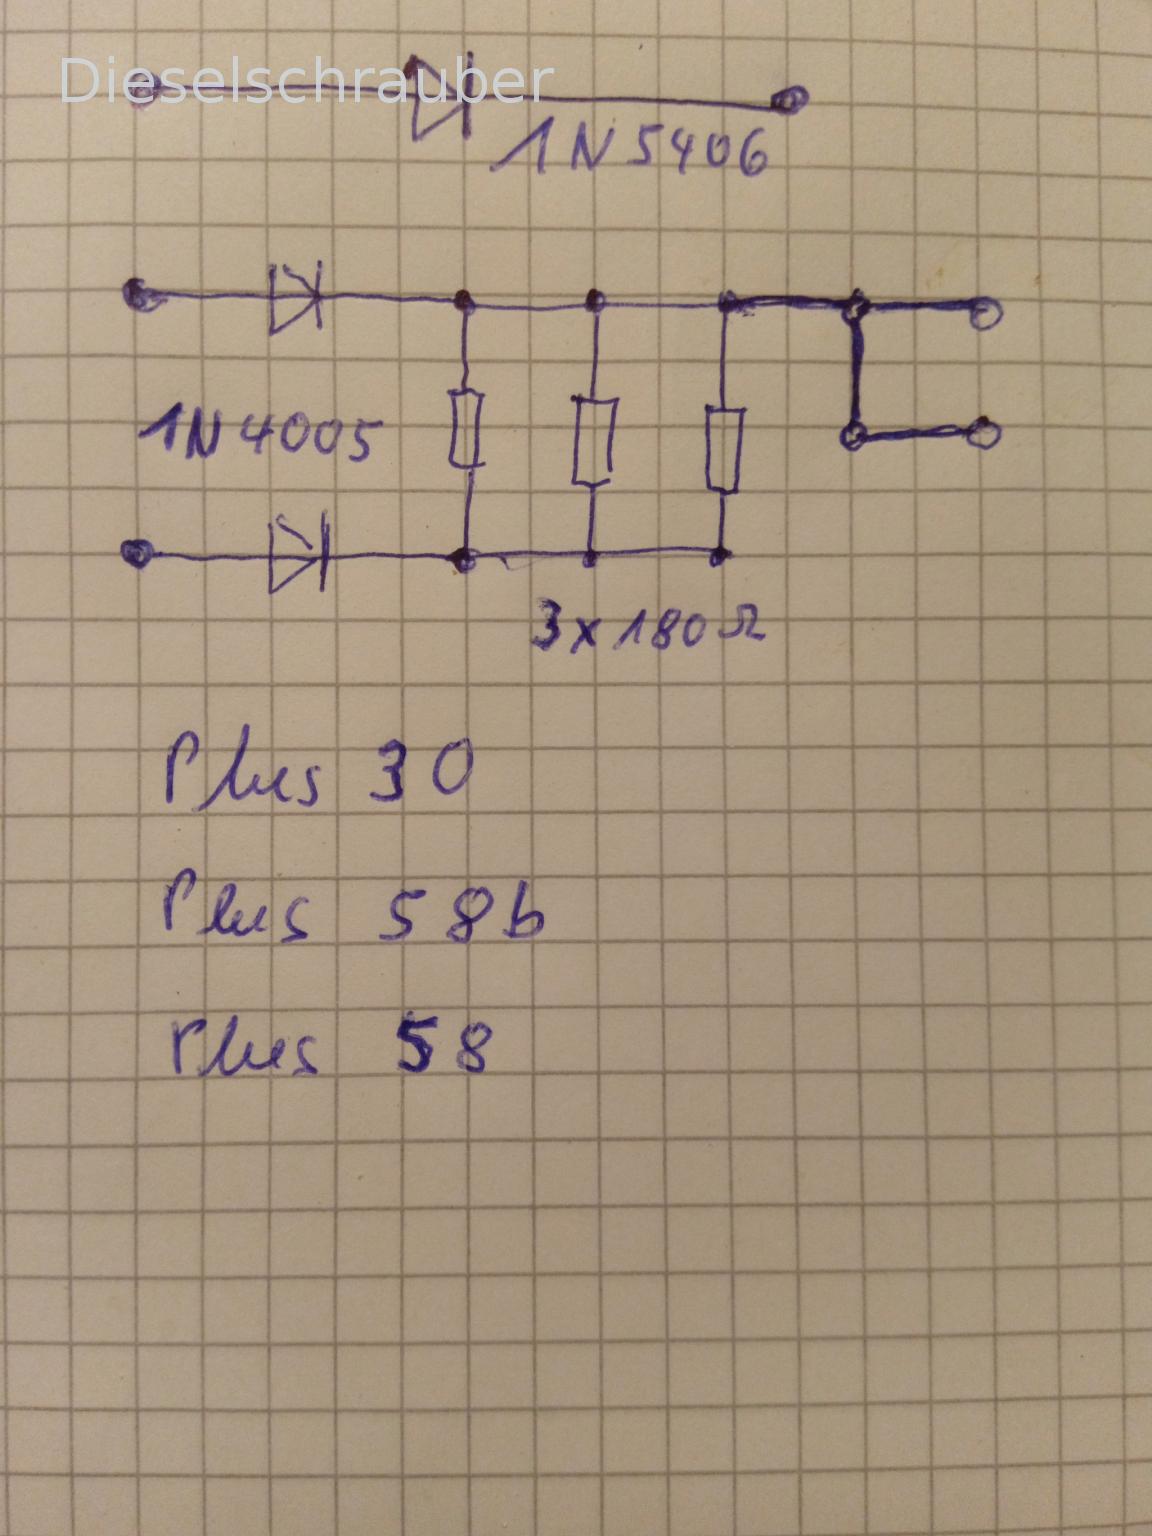 Dieselschrauber
1N5406
1N4005
3x180Ω
Plus 30
Plus 58b
Plus 58